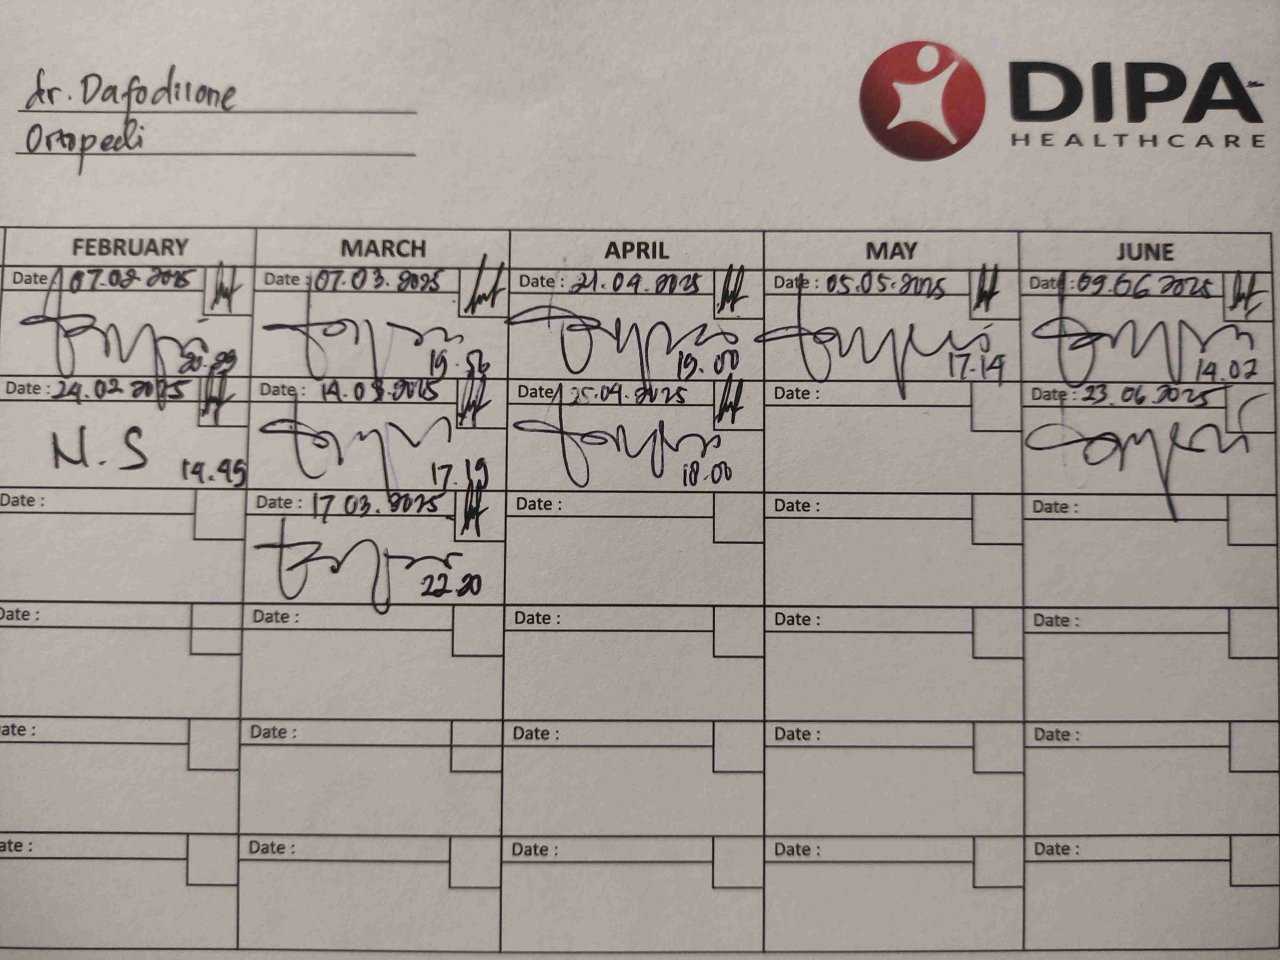 dr. Dafodilone
Ortopedi
DIPA
HEALTHCARE
FEBRUARY MARCH APRIL MAY JUNE
Date 07.02.2025 Date : 07.03.2025 Date : 21.04.2025 Date : 05.05.2025 Date : 09.06 2025
19.56 19.00 17.19 14.02
Date : 24.02 2025 Date : 14.03.2025 Date 25.04.2025 Date : Date : 23.06.2025
N.S 14.45 17.19 18.00
Date : Date : 17 03.2025 Date : Date : Date :
22.20
Date : Date : Date : Date : Date :
ate : Date : Date : Date : Date :
ate : Date : Date : Date : Date :